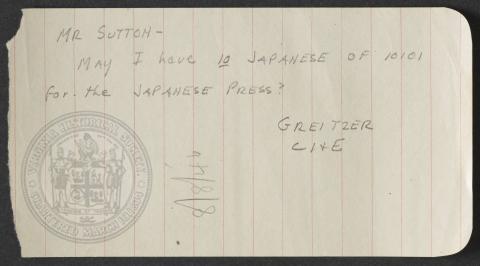 MR SUTTON-
MAY I have 10 JAPANESE OF 10101
for the JAPANESE PRESS?
GREITZER
CI&E
8/8/46
VIRGINIA HISTORICAL SOCIETY